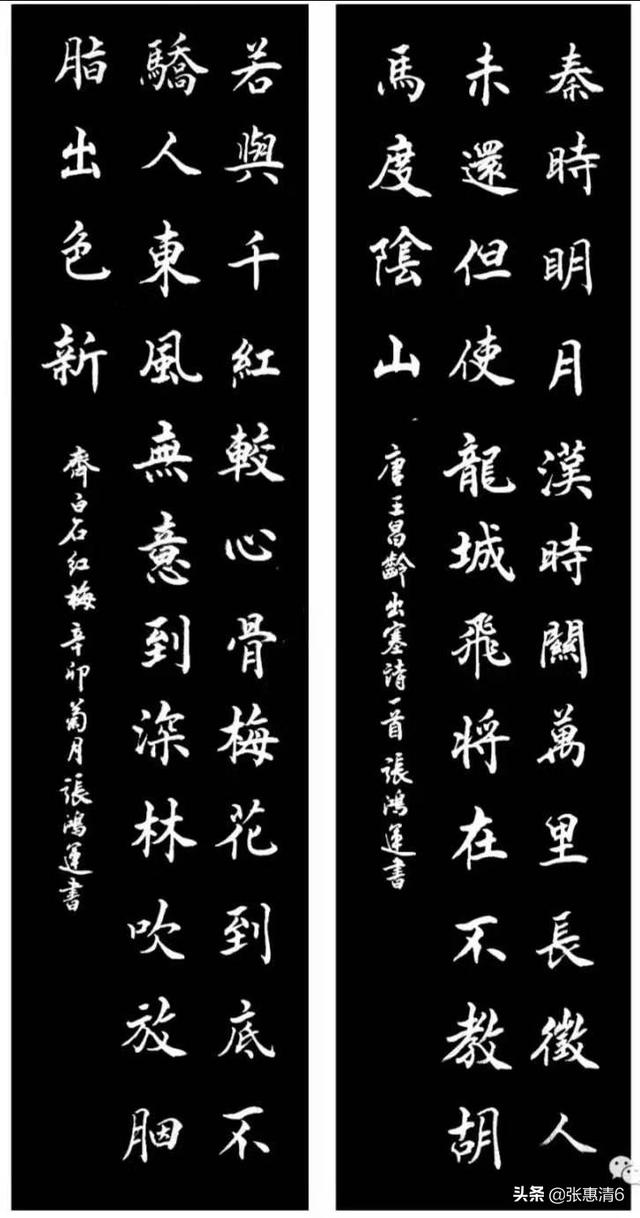 秦時明月漢時關萬里長徵人
未還但使龍城飛將在不教胡
馬度陰山
唐王昌齡出塞詩一首張鴻運書
若與千紅較心骨梅花到底不
驕人東風無意到深林吹放胭
脂出色新
齊白石紅梅辛卯菊月張鴻運書
头条 @张惠清6